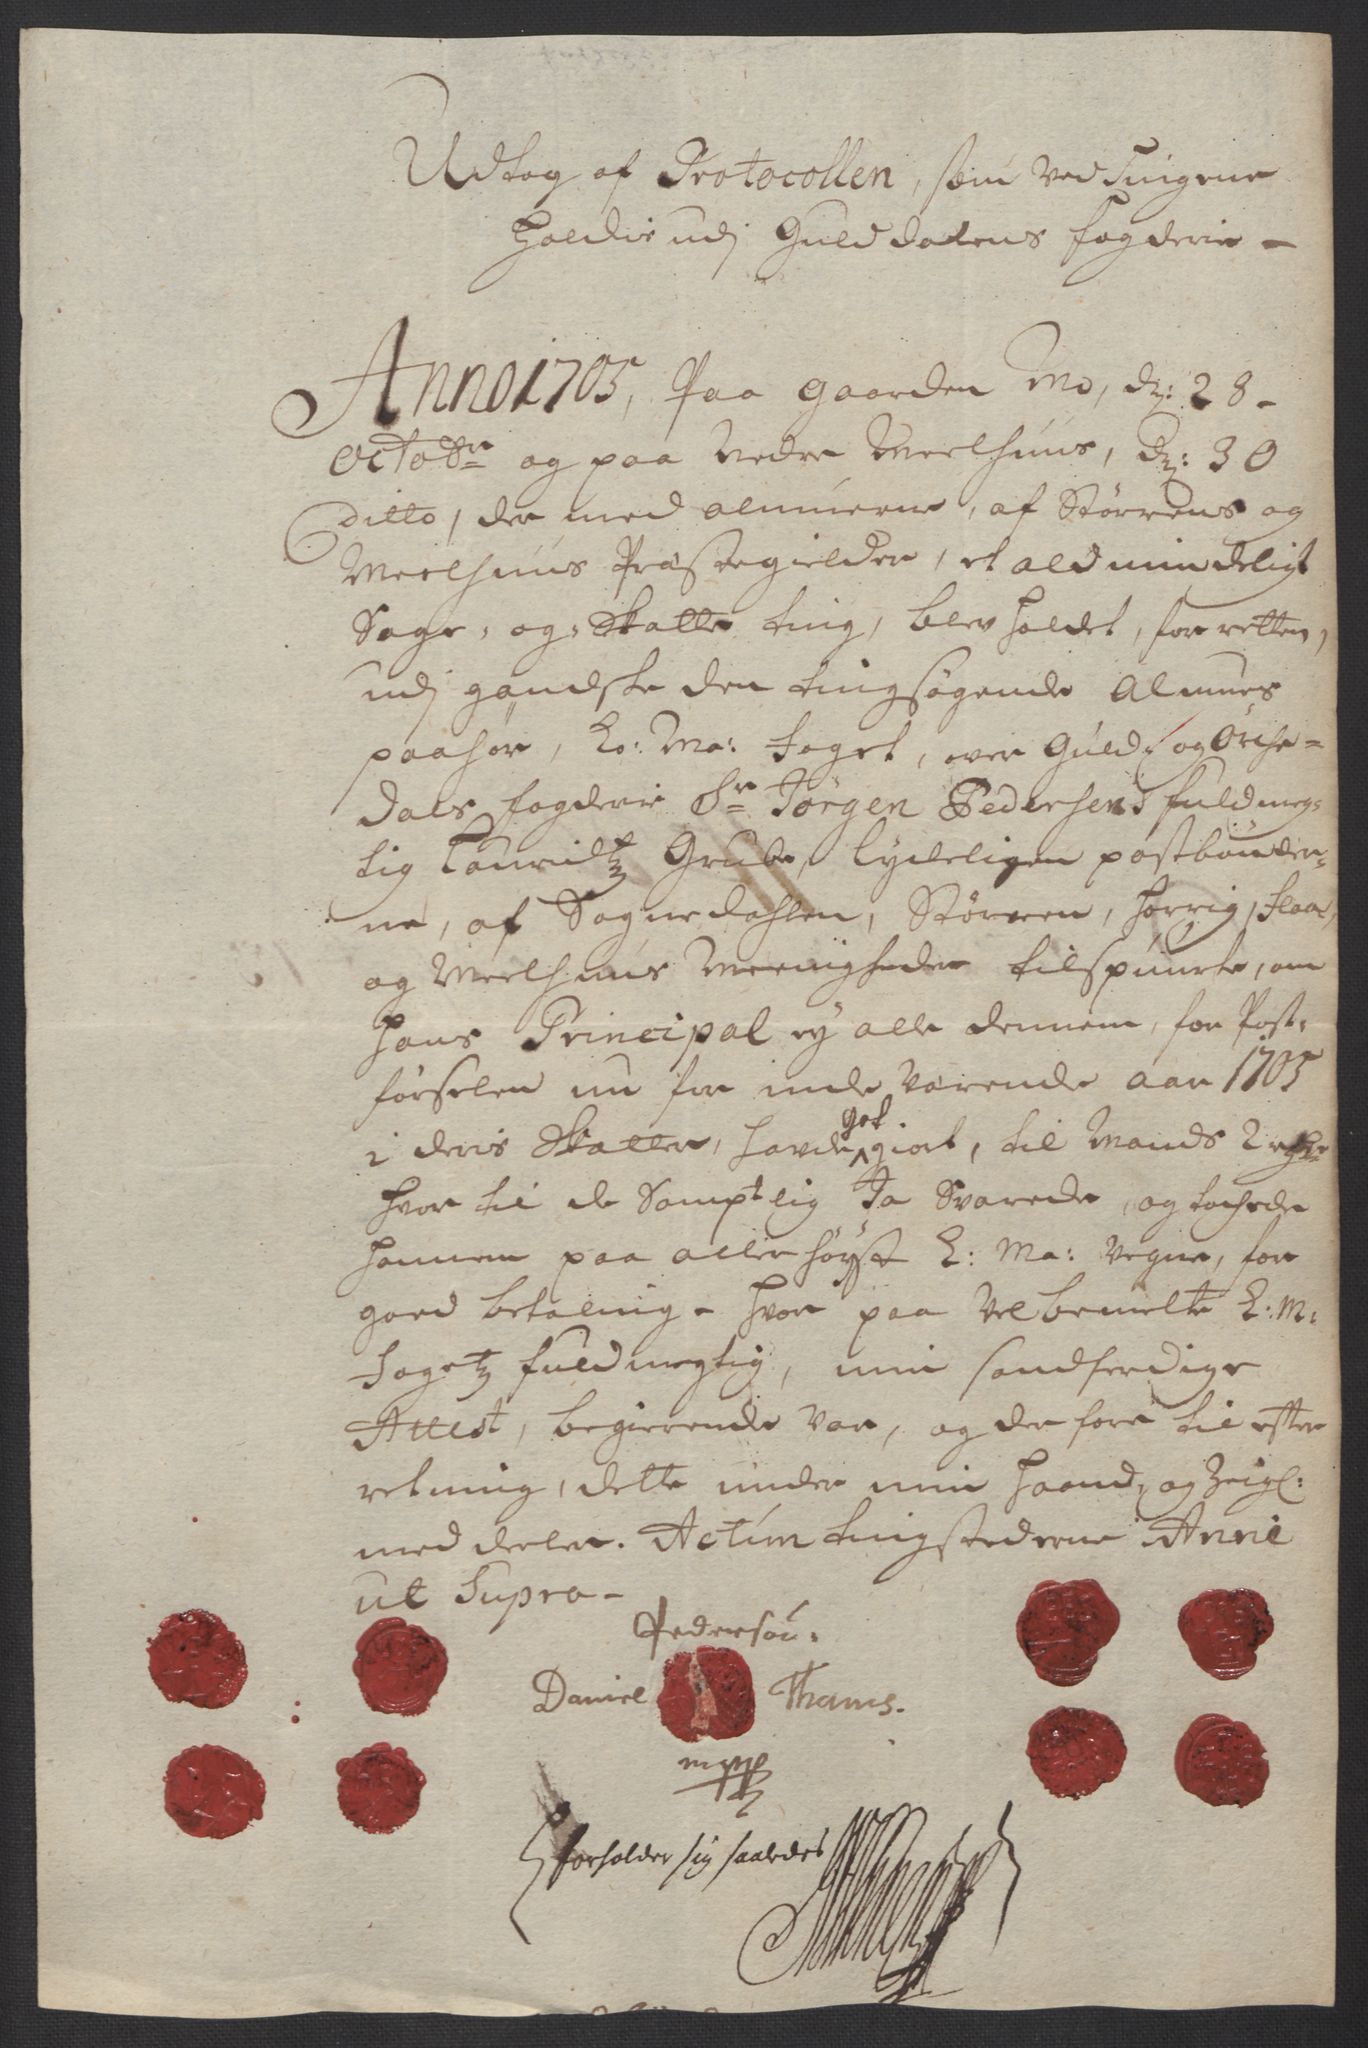 Udtog af Protocollen, som ved Tingene
holdis udj Guld dalens fogderie -
Anno 1705, Paa gaarden Mo, d: 28-
Octobr og paa Nedre Meelhuus, d: 30
ditto, der med almuerne, af Størrens og
Meelhuus Præstegielder, et aldmindeligt
Sage- og Skatte ting, blev holdet, for retten,
udj gandske den tingsøgende Almues
paahør, Ko: Ma: foget, over Guld- og Orche-
dals fogderie Sr Jørgen Pedersens fuldmeg-
tig Lauridtz Grube, lydeligen postbønder-
ne, af Sognedahlen, Størren, Horrig, Flaa,
og Meelhuus Meenigheder tilspurte, om
hans Principal ey alle dennem, for Post-
førselen nu for inde værende aar 1705
i deris Skatter, havde got giort, til Mands 2 rdr
hvor til de Samptlig Ja Svarede, og tachede
hannem paa aller høyst K: Ma: vegne, for
goed betaling - hvor paa Velbemelte K: M:
fogetz fuldmegtig, min sandferdige
Attest, begierende var, og der fore til efter
retning, dette under min haand, og Zeigl:
med deeler. Actum tingstederne Anno
ut Supra -
Pedersøn.
Daniel Thams.
mppp
forholder sig saaledes